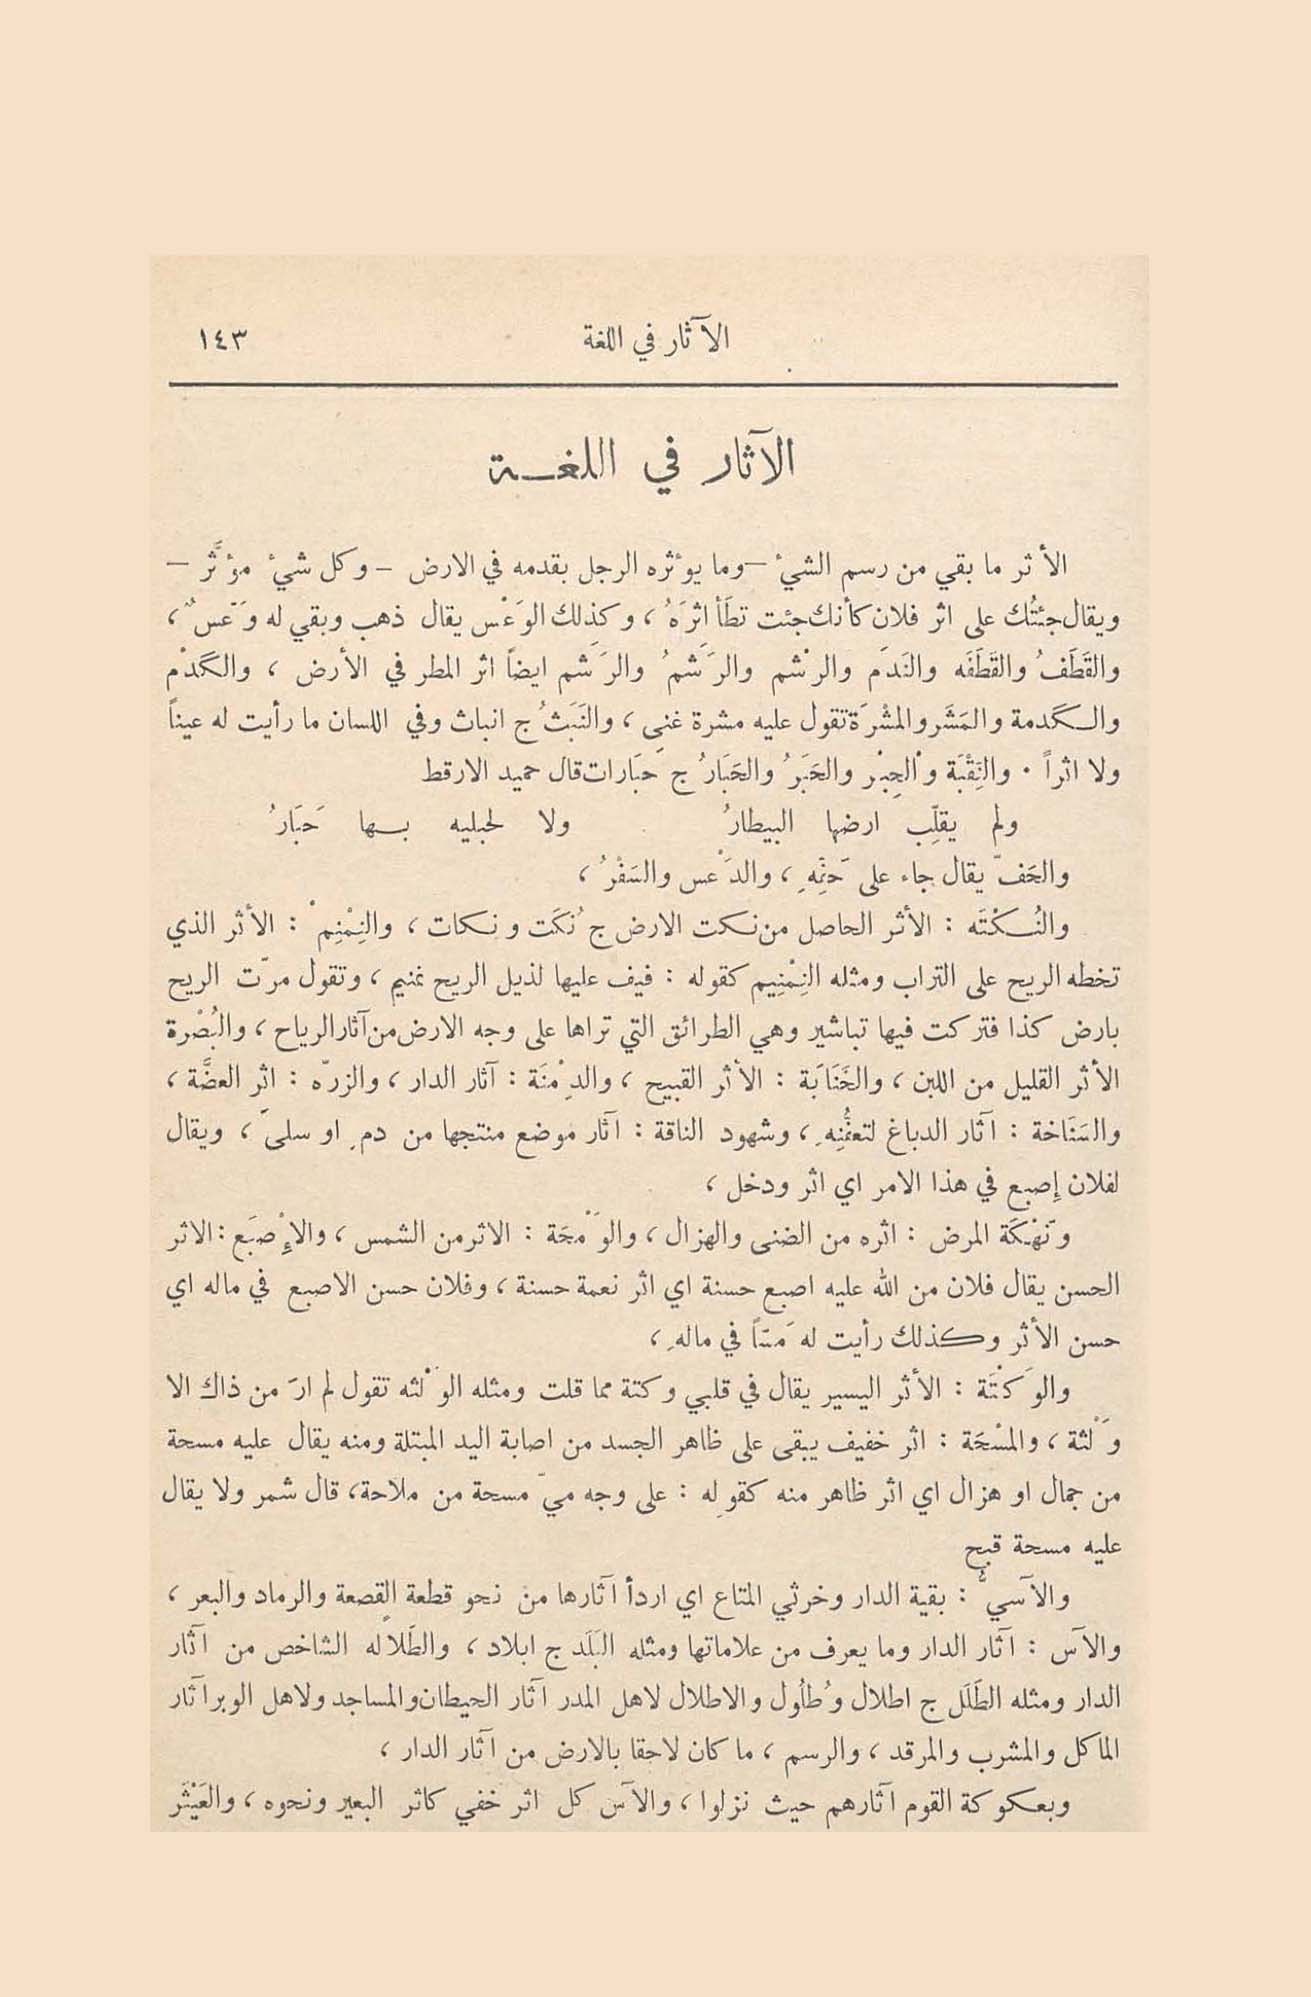 الآثار في اللغة ١٤٣
الآثار في اللغـــة
الأثر ما بقي من رسم الشيء — وما يؤثره الرجل بقدمه في الارض – وكل شيء مؤثَّر —
ويقال جئتُك على اثر فلان كأنك جئت تطَأ اثرَهُ ، وكذلك الوَعْس يقال ذهب وبقي له وَعْسٌ ،
والقَطَفُ والقَطَفَه والنَدَم والرشم والرَشمُ والرَشم ايضاً اثر المطر في الأرض ، والكَدْم
والكدمة والمَشَر والمشْرَة تقول عليه مشرة غنى ، والنَبَثُ ج انباث وفي اللسان ما رأيت له عيناً
ولا اثراً . والنِقْبَة والحِبْر والحَبَرُ والحَبَارُ ج حَبَارات قال حميد الارقط
ولم يقلّب ارضها البيطارُ ولا لحبليه بـها حَبَارُ
والحَفّ يقال جاء على ، والدَعْس والسَفْرُ ،
والنُكْتَه : الأثر الحاصل من نكت الارض ج نُكَت ونكات ، والنِمْنِمْ : الأثر الذي
تخطه الريح على التراب ومثله النِمْنِيم كقوله : فيف عليها لذيل الريح نمنيم ، وتقول مرّت الريح
بارض كذا فتركت فيها تباشير وهي الطرائق التي تراها على وجه الارض من آثار الرياح ، والبُصْرة
الأثر القليل من اللبن ، والخَنَابَة : الأثر القبيح ، والدِمْنَة : آثار الدار ، والزرّه : اثر العضَّة ،
والسَنَاخة : آثار الدباغ لتعفُّنِهِ ، وشهود الناقة : آثار موضع منتجها من دمٍ او سلىً ، ويقال
لفلان إصبع في هذا الامر اي اثر ودخل ،
ونَهْكَة المرض : اثره من الضنى والهزال ، والوَمْحَة : الاثر من الشمس ، والاِصْبَع : الاثر
الحسن يقال فلان من الله عليه اصبع حسنة اي اثر نعمة حسنة ، وفلان حسن الاصبع في ماله اي
حسن الأثر وكذلك رأيت له مَسّاً في مالهِ ،
والوَكْتَة : الأثر اليسير يقال في قلبي وكتة مما قلت ومثله الوَلْثه تقول لم ارَ من ذاك الا
وَلْثة ، والمسْحَة : اثر خفيف يبقى على ظاهر الجسد من اصابة اليد المبتلة ومنه يقال عليه مسحة
من جمال او هزال اي اثر ظاهر منه كقوله : على وجه ميّ مسحة من ملاحة، قال شمر ولا يقال
عليه مسحة قبح
والآسيُّ : بقية الدار وخرثي المتاع اي اردأ آثارها من نحو قطعة القصعة والرماد والبعر ،
والآس : آثار الدار وما يعرف من علاماتها ومثله البَلَد ج ابلاد ، والطَلاله الشاخص من آثار
الدار ومثله الطَلَل ج اطلال وطُلُول والاطلال لاهل المدر آثار الحيطان والمساجد ولاهل الوبر آثار
الماكل والمشرب والمرقد ، والرسم ، ما كان لاحقا بالارض من آثار الدار ،
وبعكوكة القوم آثارهم حيث نزلوا ، والآس كل اثر خفي كاثر البعير ونحوه ، والعَيْثَر